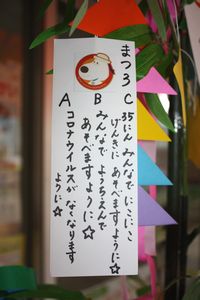 まつろC
35にん みんなで にこにこ
げんきに あそべますように☆
B
みんなで ようちえんで
あそべますように☆
A
コロナウイルスが なくなります
ように☆